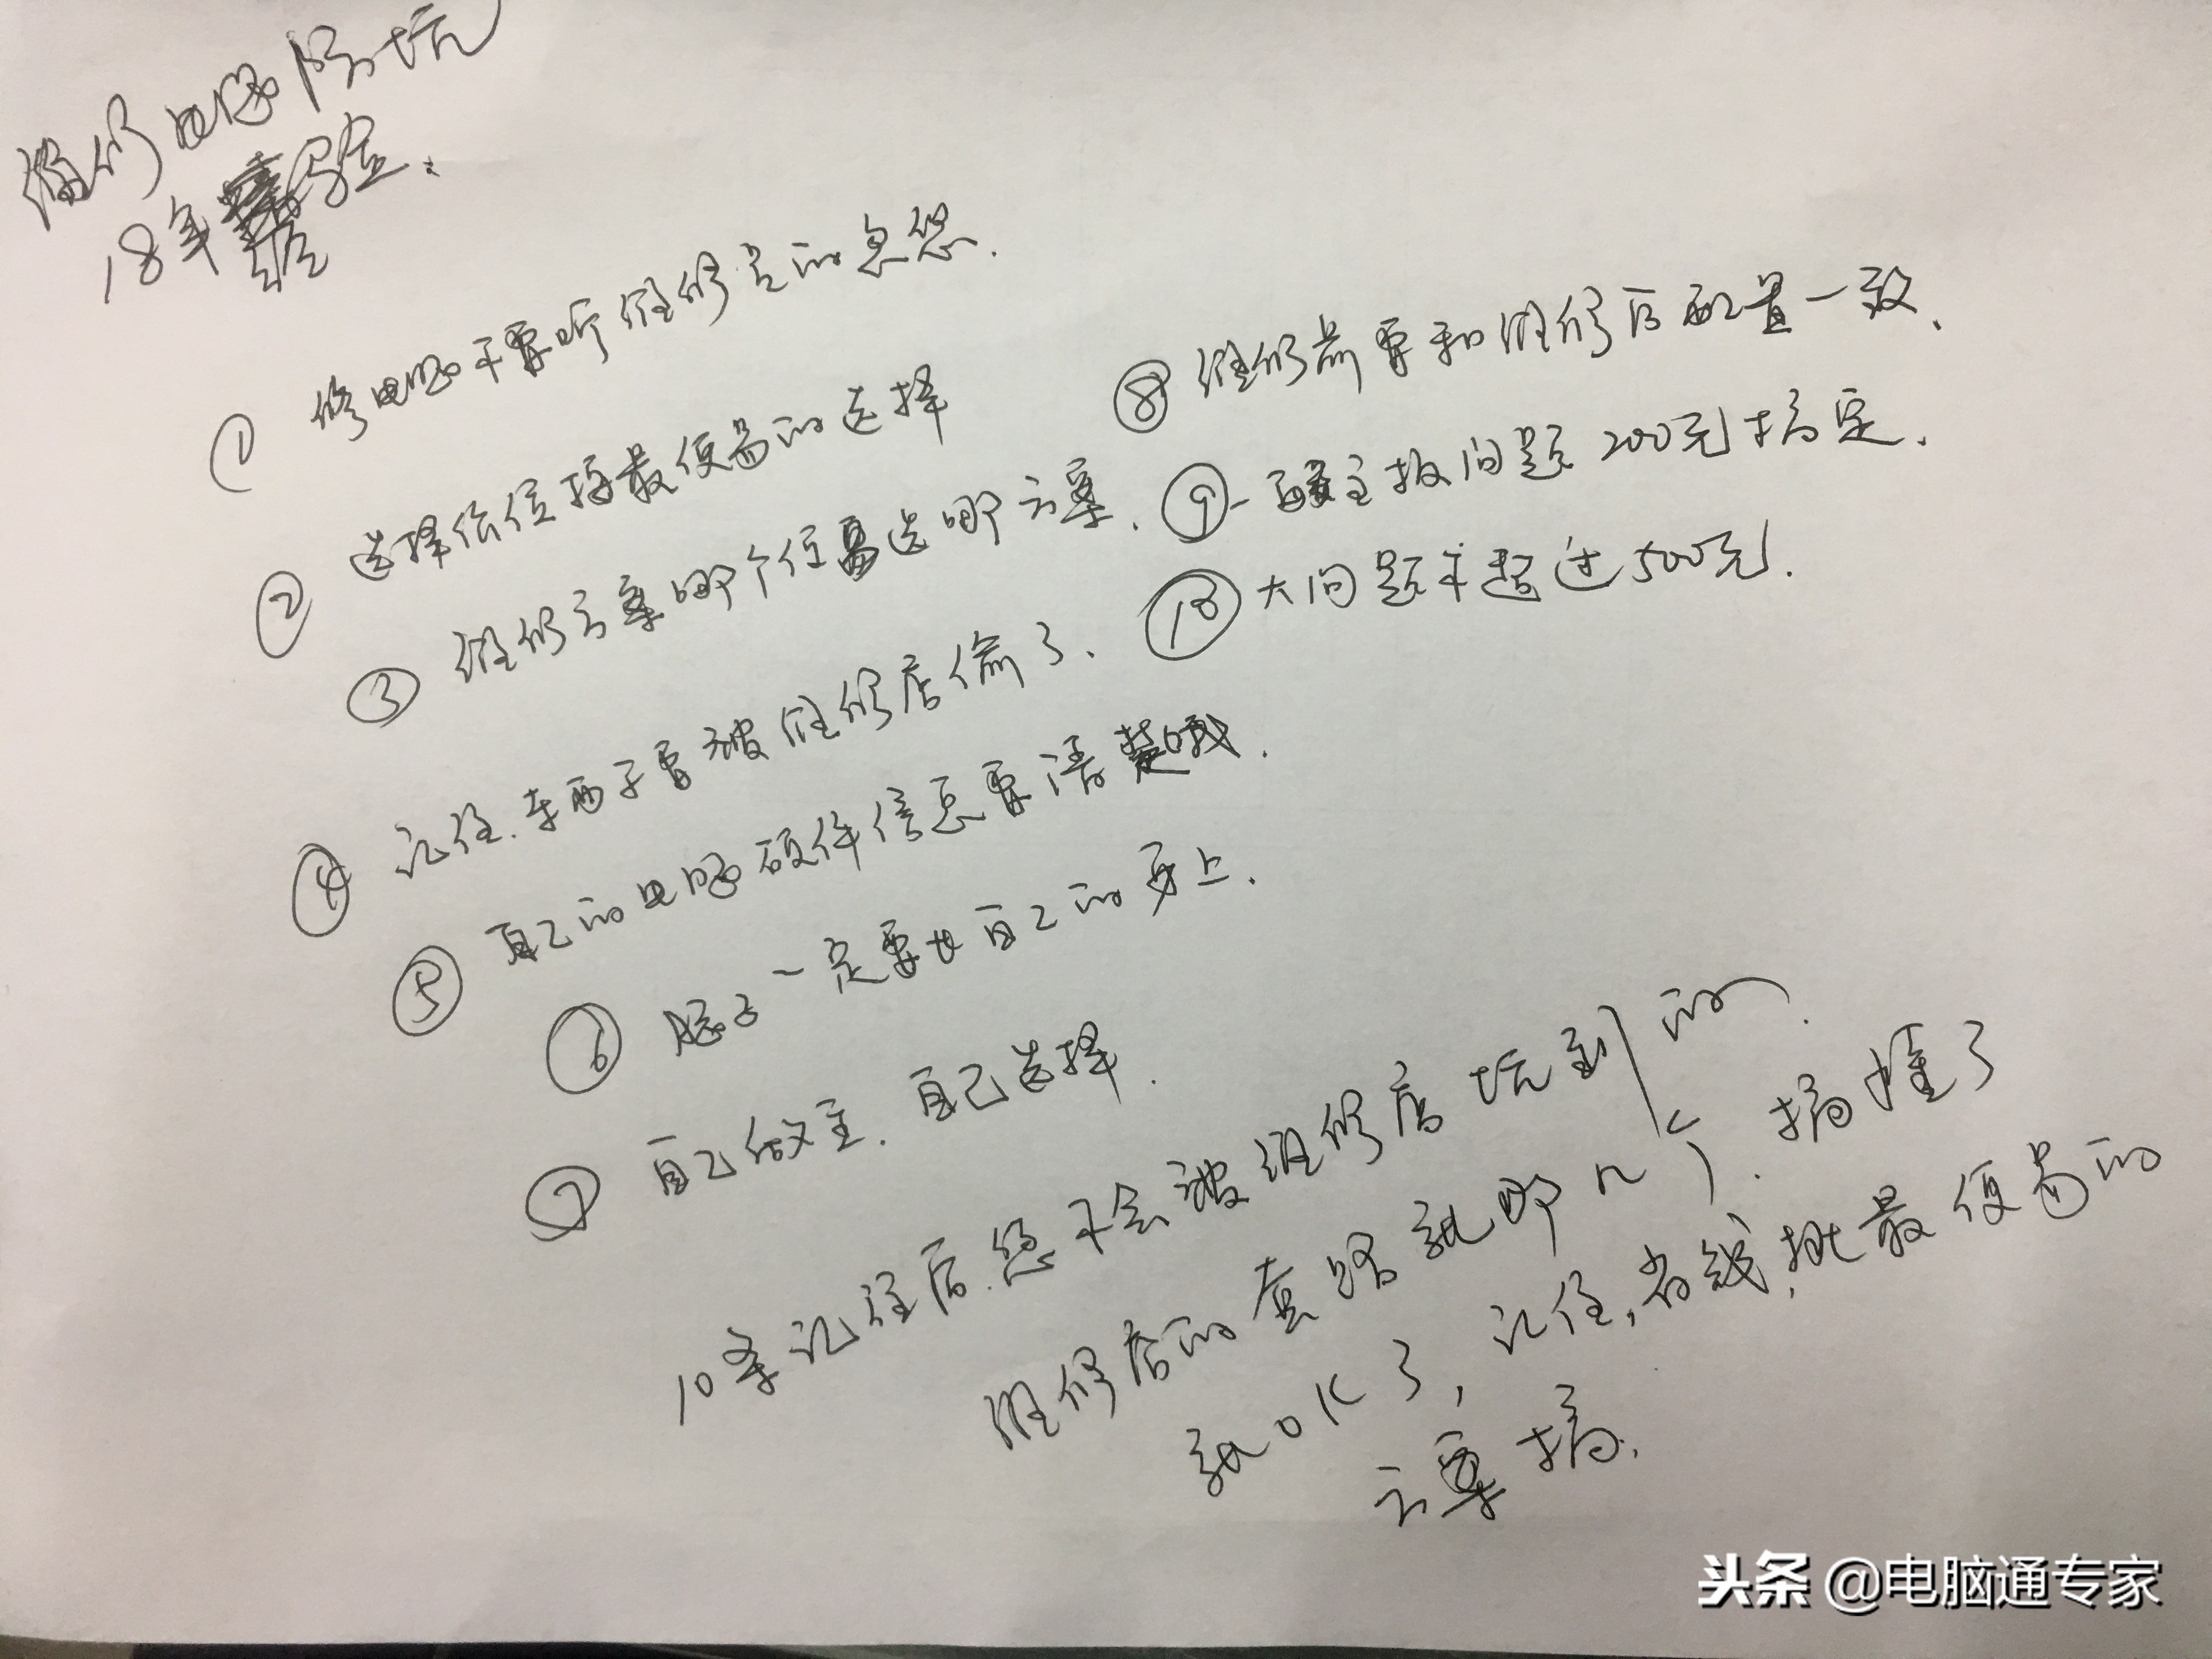 维修电脑防坑
18年经验.
① 修电脑不要听维修店的忽悠.
② 选择价位按最便宜的选择
③ 维修方案哪个便宜选哪方案.
④ 记住.东西不要被维修店偷了.
⑤ 自己的电脑硬件信息要清楚哦.
⑥ 脑子一定要长自己的身上.
⑦ 自己做主.自己选择.
⑧ 维修前要和维修后配置一致、
⑨ 一般主板问题200元搞定.
⑩ 大问题不超过500元.
10条记住后.您不会被维修店坑到的.
维修店的套路就那几个.搞懂了
就OK了,记住,省钱,挑最便宜的
方案搞.
头条 @电脑通专家